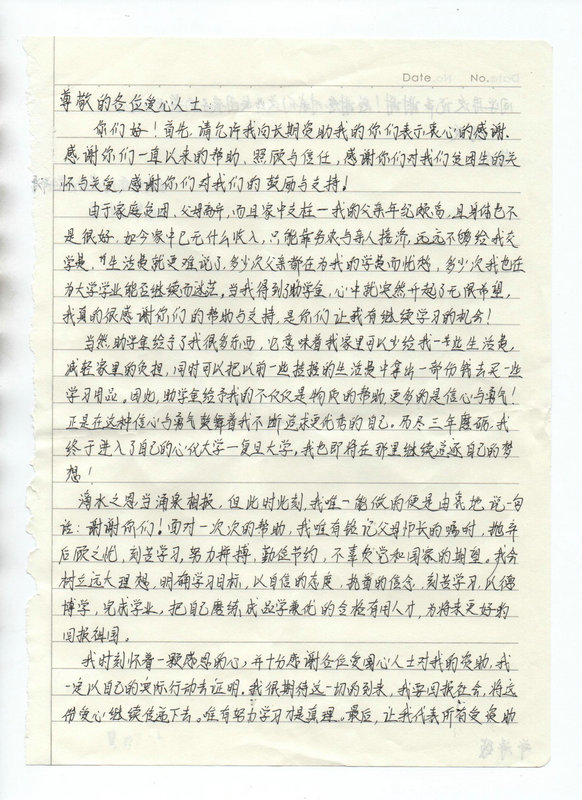 Date No.
尊敬的各位爱心人士：
你们好！首先，请允许我向长期资助我的你们表示衷心的感谢，
感谢你们一直以来的帮助、照顾与信任，感谢你们对我们贫困生的关
怀与关爱，感谢你们对我们的鼓励与支持！
由于家庭贫困、父母离异，而且家中支柱—我的父亲年纪颇高，且身体也不
是很好，如今家中已无什么收入，只能靠务农与亲人接济，远远不够给我交
学费，生活费就更难说了，多少次父亲都在为我的学费而忧愁，多少次我也在
为大学学业能否继续而迷茫。当我得到了助学金，心中就突然升起了无限希望，
我真的很感谢你们的帮助与支持，是你们让我有继续学习的机会！
当然，助学金给予了我很多东西，它意味着我家里可以少给我一些生活费，
减轻家里的负担，同时可以把以前一些拮据的生活费中拿出一部份钱去买一些
学习用品。因此，助学金给予我的不仅仅是物质的帮助，更多的是信心与勇气！
正是在这种信心与勇气鼓舞着我不断追求更优秀的自己。历尽三年磨砺，我
终于进入了自己的心仪大学—复旦大学，我也即将在那里继续追逐自己的梦
想！
滴水之恩当涌泉相报，但此时此刻，我唯一能做的便是由衷地说一句
话：谢谢你们！面对一次次的帮助，我唯有铭记父母师长的嘱咐，抛弃
后顾之忧，刻苦学习，努力拼搏，勤俭节约，不辜负党和国家的期望。我会
树立远大理想，明确学习目标，以自信的态度，执着的信念，刻苦学习，以德
博学，完成学业，把自己磨练成品学兼优的合格有用人才，为将来更好的
回报祖国。
我时刻怀着一颗感恩的心，并十分感谢各位爱心人士对我的资助，我
一定以自己的实际行动去证明。我很期待这一切的到来，我要回报社会，将这
份爱心继续传递下去。唯有努力学习才是真理。最后，让我代表所有受资助